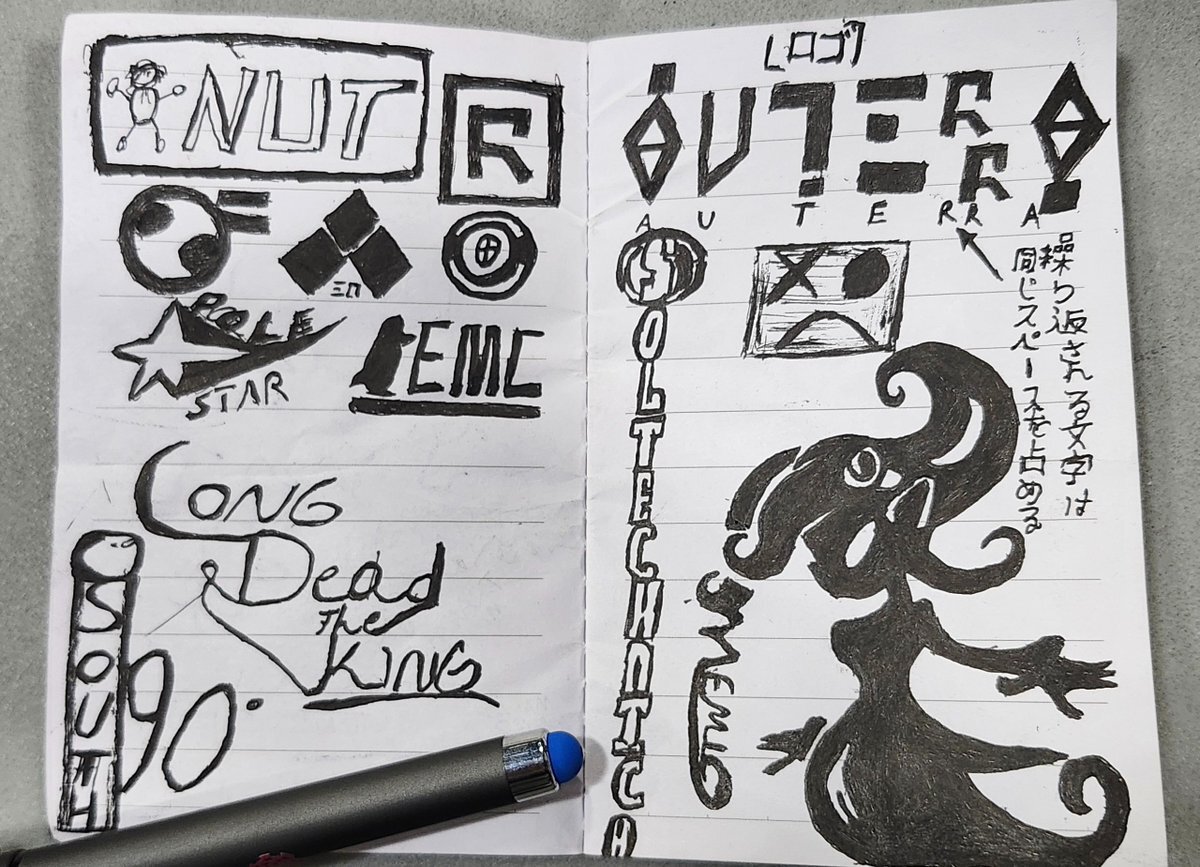 NUT
R
POLE
STAR
EMC
LONG
Dead
The
KING
SOUTH
90°
「ロゴ」
AUTERRA
A U T E R R A
繰り返される文字は
同じスペースを占める